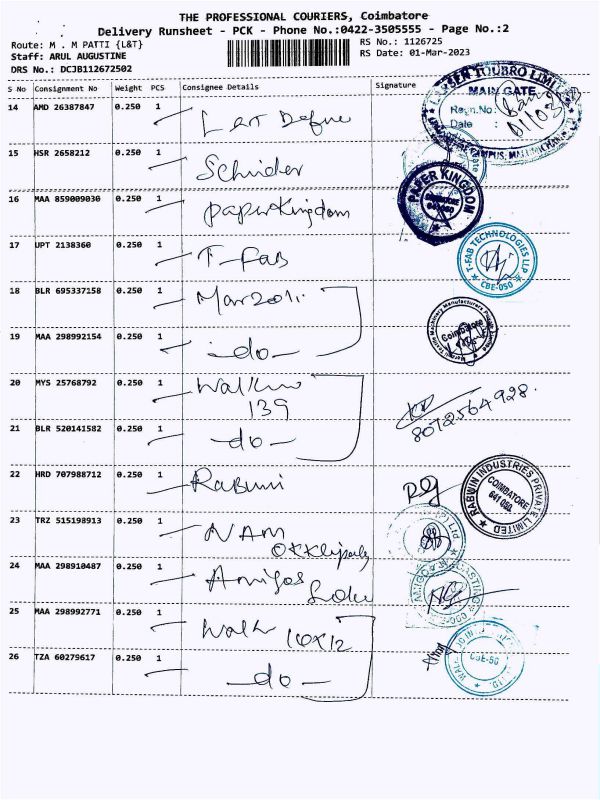 THE PROFESSIONAL COURIERS, Coimbatore
Delivery Runsheet - PCK - Phone No.:0422-3505555 - Page No.:2
Route: M . M PATTI {L&T}
RS No.: 1126725
Staff: ARUL AUGUSTINE
RS Date: 01-Mar-2023
DRS No.: DCJB112672502
S No Consignment No Weight PCS Consignee Details Signature
LARSEN TOUBRO LIMITED
MAIN GATE
Regn.No:
Date :
14 AMD 26387847 0.250 1
15 HSR 2658212 0.250 1 Schnider
16 MAA 859009030 0.250 1 paperkingdom
PAPER KINGDOM
17 UPT 2138360 0.250 1 T-Fab
T-FAB TECHNOLOGIES LLP
CBE-050
18 BLR 695337158 0.250 1
19 MAA 298992154 0.250 1 -do-
Coimbatore
20 MYS 25768792 0.250 1
139
8072564928.
21 BLR 520141582 0.250 1 -do-
22 HRD 707988712 0.250 1
RABWIN INDUSTRIES PRIVATE LIMITED
COIMBATORE
641 050.
23 TRZ 515198913 0.250 1 NAM
24 MAA 298910487 0.250 1 Amigos
25 MAA 298992771 0.250 1
26 TZA 60279617 0.250 1 -do-
CBE-50